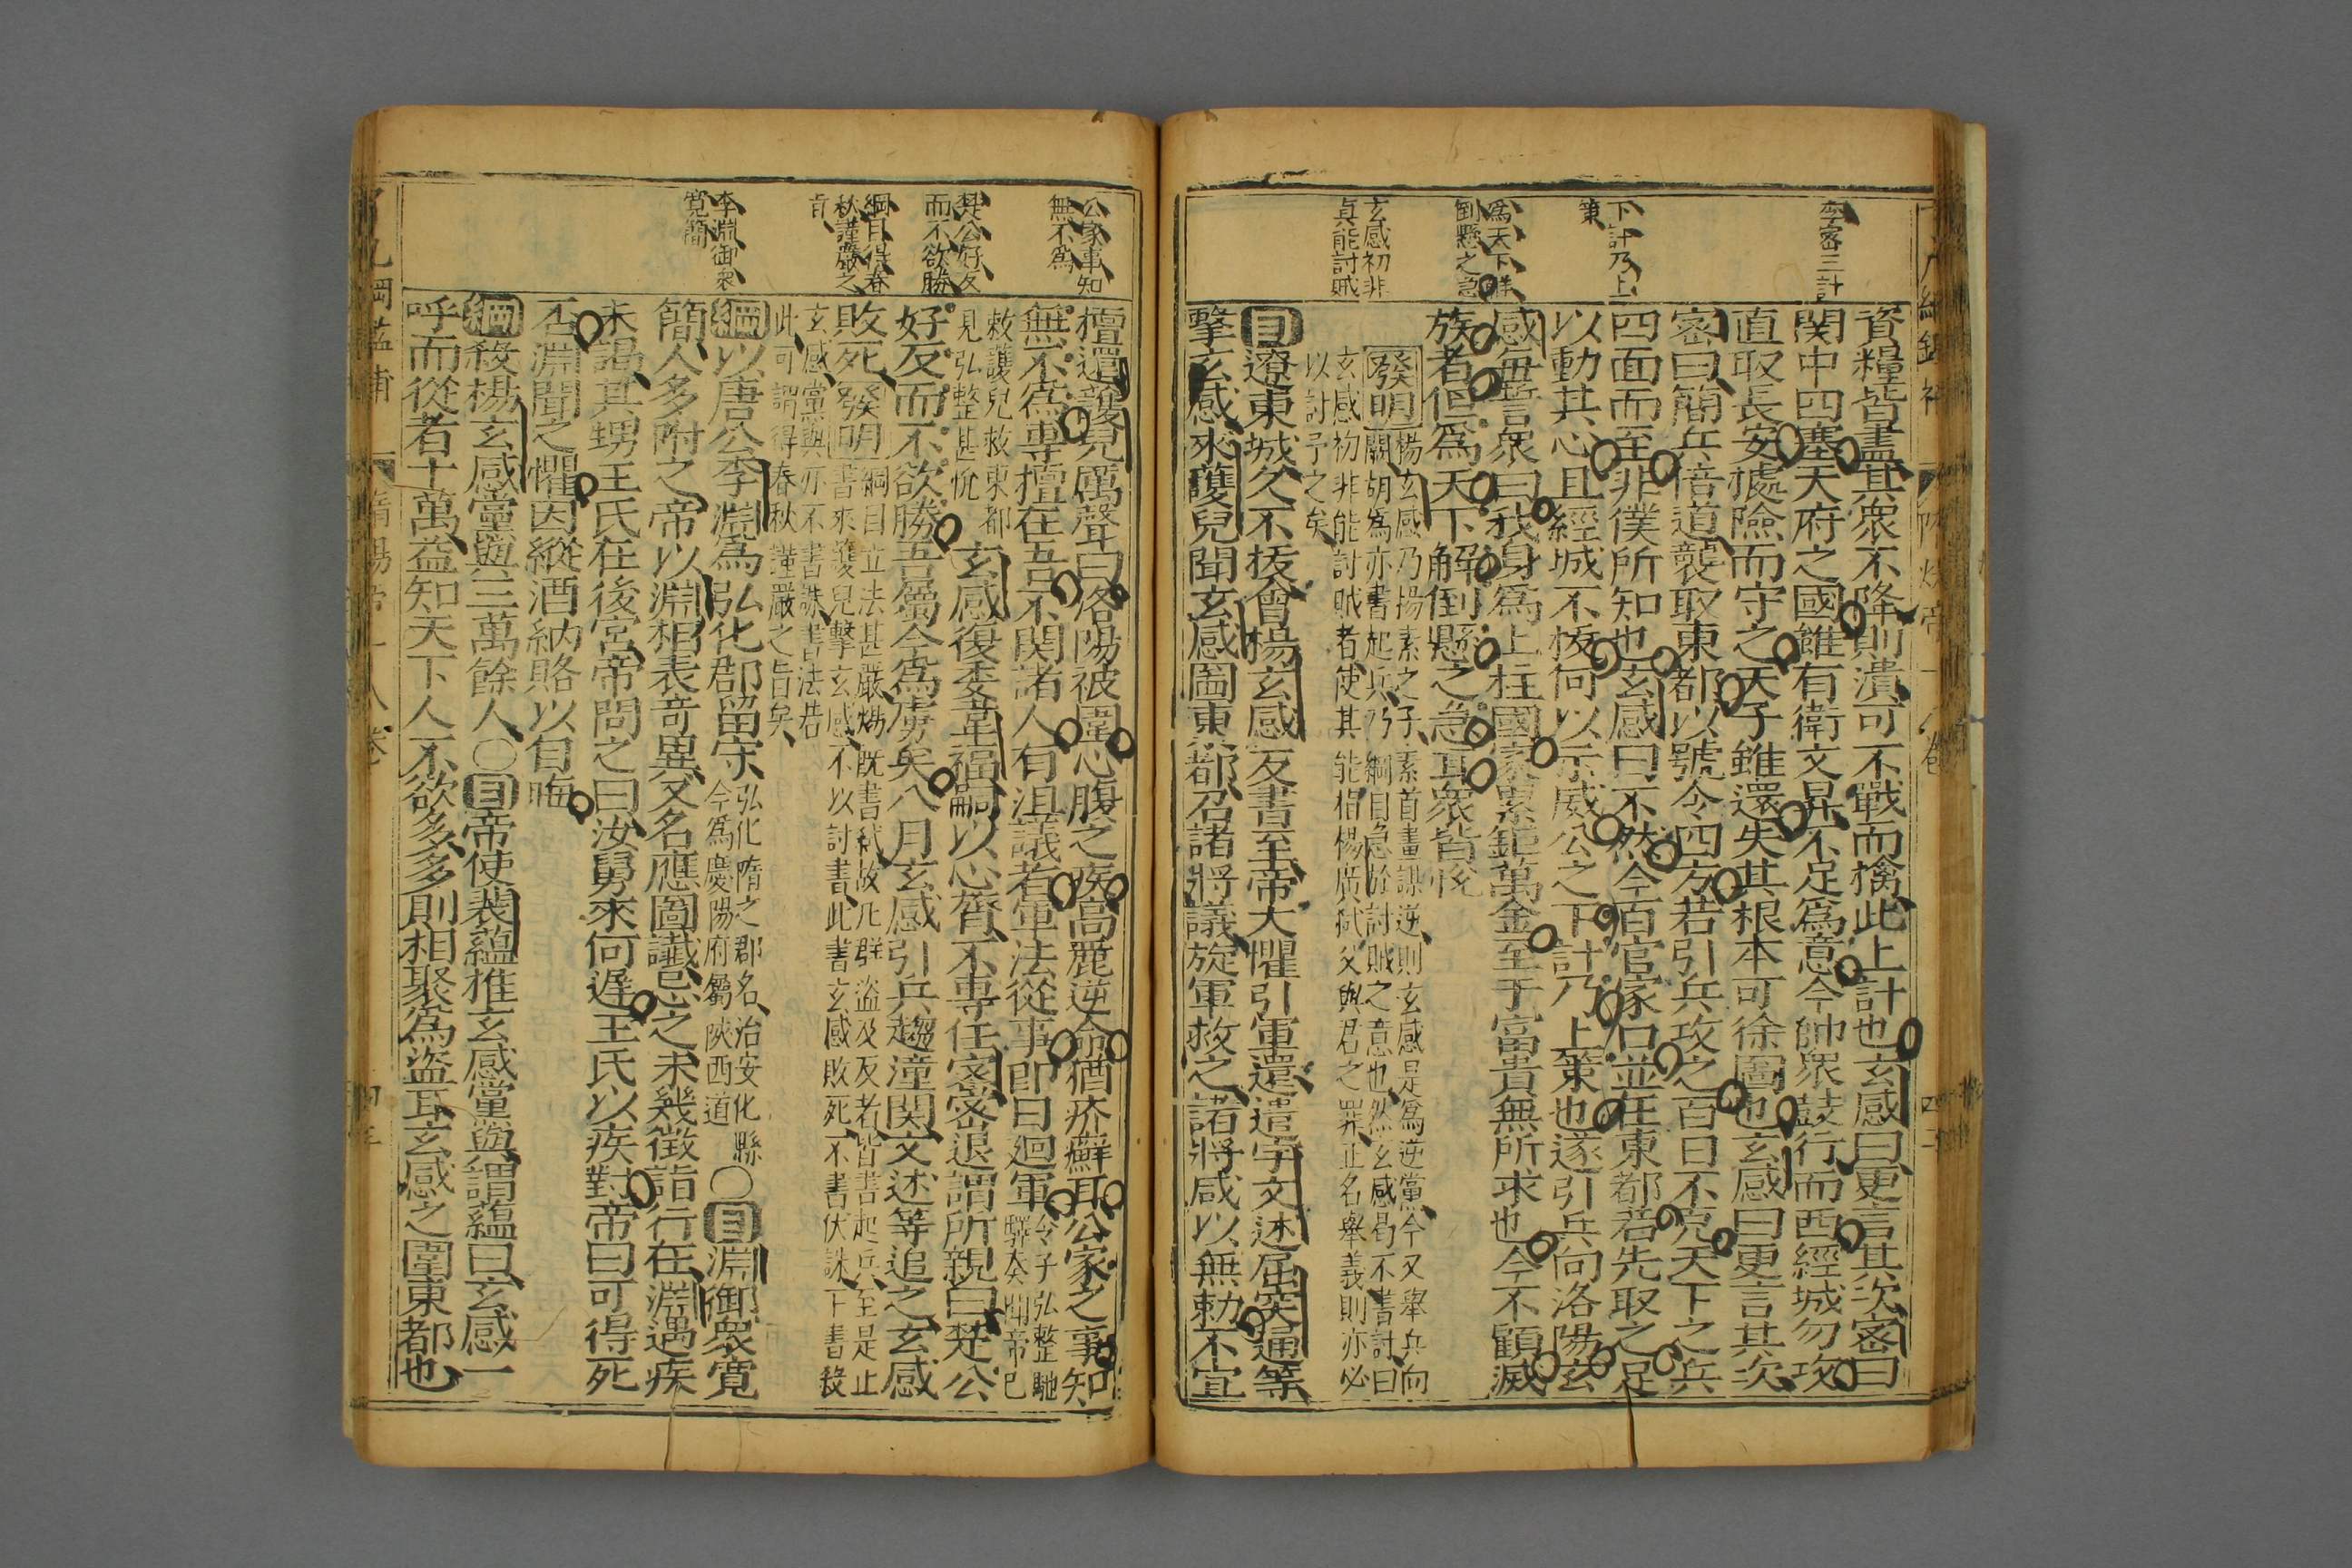 李密三計
下計乃上
策
爲天下解
倒懸之急
玄感初非
真能討賊
資糧皆盡其衆不降則潰可不戰而擒此上計也玄感曰更言其次密曰
関中四塞天府之國雖有衛文昇不足爲意今帥衆鼓行而西經城勿攻
直取長安據險而守之天子雖還失其根本可徐圖也玄感曰更言其次
密曰簡兵倍道襲取東都以號令四方若引兵攻之百日不克天下之兵
四面而至非僕所知也玄感曰不然今百官家口並在東都若先取之足
以動其心且經城不拔何以示威公之下計乃上策也遂引兵向洛陽玄
感每誓衆曰我身爲上柱國家累鉅萬金至于富貴無所求也今不顧滅
族者但爲天下解倒懸之急耳衆皆悅
發明
楊玄感乃楊素之子素首畫謀逆則玄感是爲逆黨今又舉兵向
關胡爲亦書起兵乃綱目急於討賊之意也然玄感曷不書討曰
玄感初非能討賊者使其能指楊廣弒父與君之罪正名舉義則亦必
以討予之矣
目遼東城久不拔會楊玄感反書至帝大懼引軍還遣宇文述屈突通等
擊玄感來護兒聞玄感圍東都召諸將議旋軍救之諸將咸以無勅不宜
公家事知
無不爲
楚公好反
而不欲勝
綱目得春
秋謹嚴之
旨
李淵御衆
寛簡
擅還護兒厲聲曰洛陽被圍心腹之疾高麗逆命猶疥癬耳公家之事知
無不爲專擅在吾不関諸人有沮議者軍法從事即日廻軍
令子弘整馳
驛奏聞帝已
敕護兒救東都
見弘整甚悅
玄感復委韋福嗣以心膂不專任密密退謂所親曰楚公
好反而不欲勝吾屬今爲虜矣八月玄感引兵趨潼関文述等追之玄感
敗死
發明
綱目立法甚嚴煬既書弒故凡群盜及反者皆書起兵至是止
書來護兒擊玄感不以討書此書玄感敗死不書伏誅下書殺
玄感黨與亦不書誅書法若
此可謂得春秋謹嚴之旨矣
綱以唐公李淵爲弘化郡留守
弘化隋之郡名治安化縣
今爲慶陽府屬陝西道
〇目淵御衆寛
簡人多附之帝以淵相表奇異又名應圖讖忌之未幾徵詣行在淵遇疾
未謁其甥王氏在後宮帝問之曰汝舅來何遲王氏以疾對帝曰可得死
否淵聞之懼因縱酒納賂以自晦
綱殺楊玄感黨與三萬餘人〇目帝使裴蘊推玄感黨與謂蘊曰玄感一
呼而從者十萬益知天下人不欲多多則相聚爲盜耳玄感之圍東都也